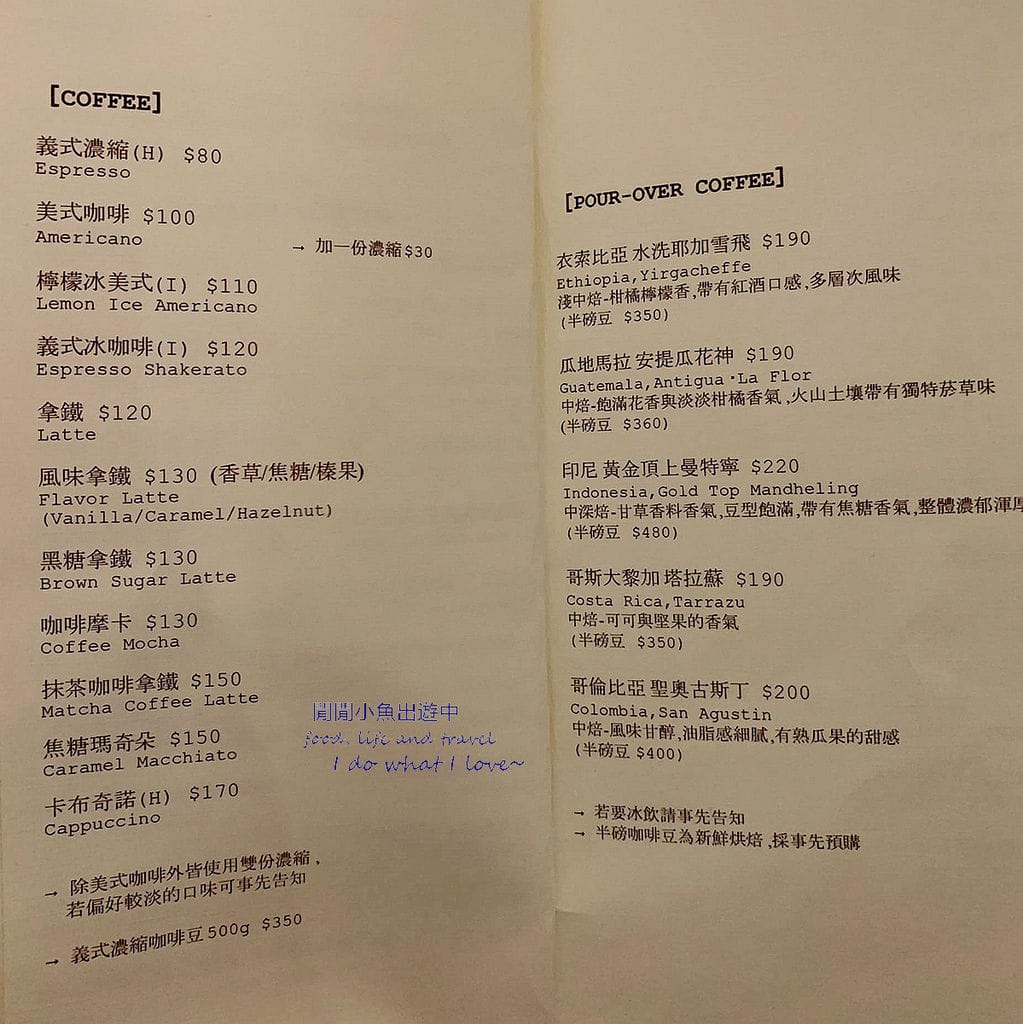 [COFFEE]
義式濃縮(H) $80
Espresso
美式咖啡 $100
Americano
→ 加一份濃縮$30
檸檬冰美式(I) $110
Lemon Ice Americano
義式冰咖啡(I) $120
Espresso Shakerato
拿鐵 $120
Latte
風味拿鐵 $130 (香草/焦糖/榛果)
Flavor Latte
(Vanilla/Caramel/Hazelnut)
黑糖拿鐵 $130
Brown Sugar Latte
咖啡摩卡 $130
Coffee Mocha
抹茶咖啡拿鐵 $150
Matcha Coffee Latte
焦糖瑪奇朵 $150
Caramel Macchiato
卡布奇諾(H) $170
Cappuccino
→ 除美式咖啡外皆使用雙份濃縮,
若偏好較淡的口味可事先告知
→ 義式濃縮咖啡豆500g $350
[POUR-OVER COFFEE]
衣索比亞 水洗耶加雪飛 $190
Ethiopia,Yirgacheffe
淺中焙-柑橘檸檬香,帶有紅酒口感,多層次風味
(半磅豆 $350)
瓜地馬拉 安提瓜花神 $190
Guatemala,Antigua·La Flor
中焙-飽滿花香與淡淡柑橘香氣,火山土壤帶有獨特菸草味
(半磅豆 $360)
印尼 黃金頂上曼特寧 $220
Indonesia,Gold Top Mandheling
中深焙-甘草香料香氣,豆型飽滿,帶有焦糖香氣,整體濃郁渾厚
(半磅豆 $480)
哥斯大黎加 塔拉蘇 $190
Costa Rica,Tarrazu
中焙-可可與堅果的香氣
(半磅豆 $350)
哥倫比亞 聖奧古斯丁 $200
Colombia,San Agustin
中焙-風味甘醇,油脂感細膩,有熟瓜果的甜感
(半磅豆 $400)
→ 若要冰飲請事先告知
→ 半磅咖啡豆為新鮮烘焙,採事先預購
閒閒小魚出遊中
food, life and travel
I do what I love~